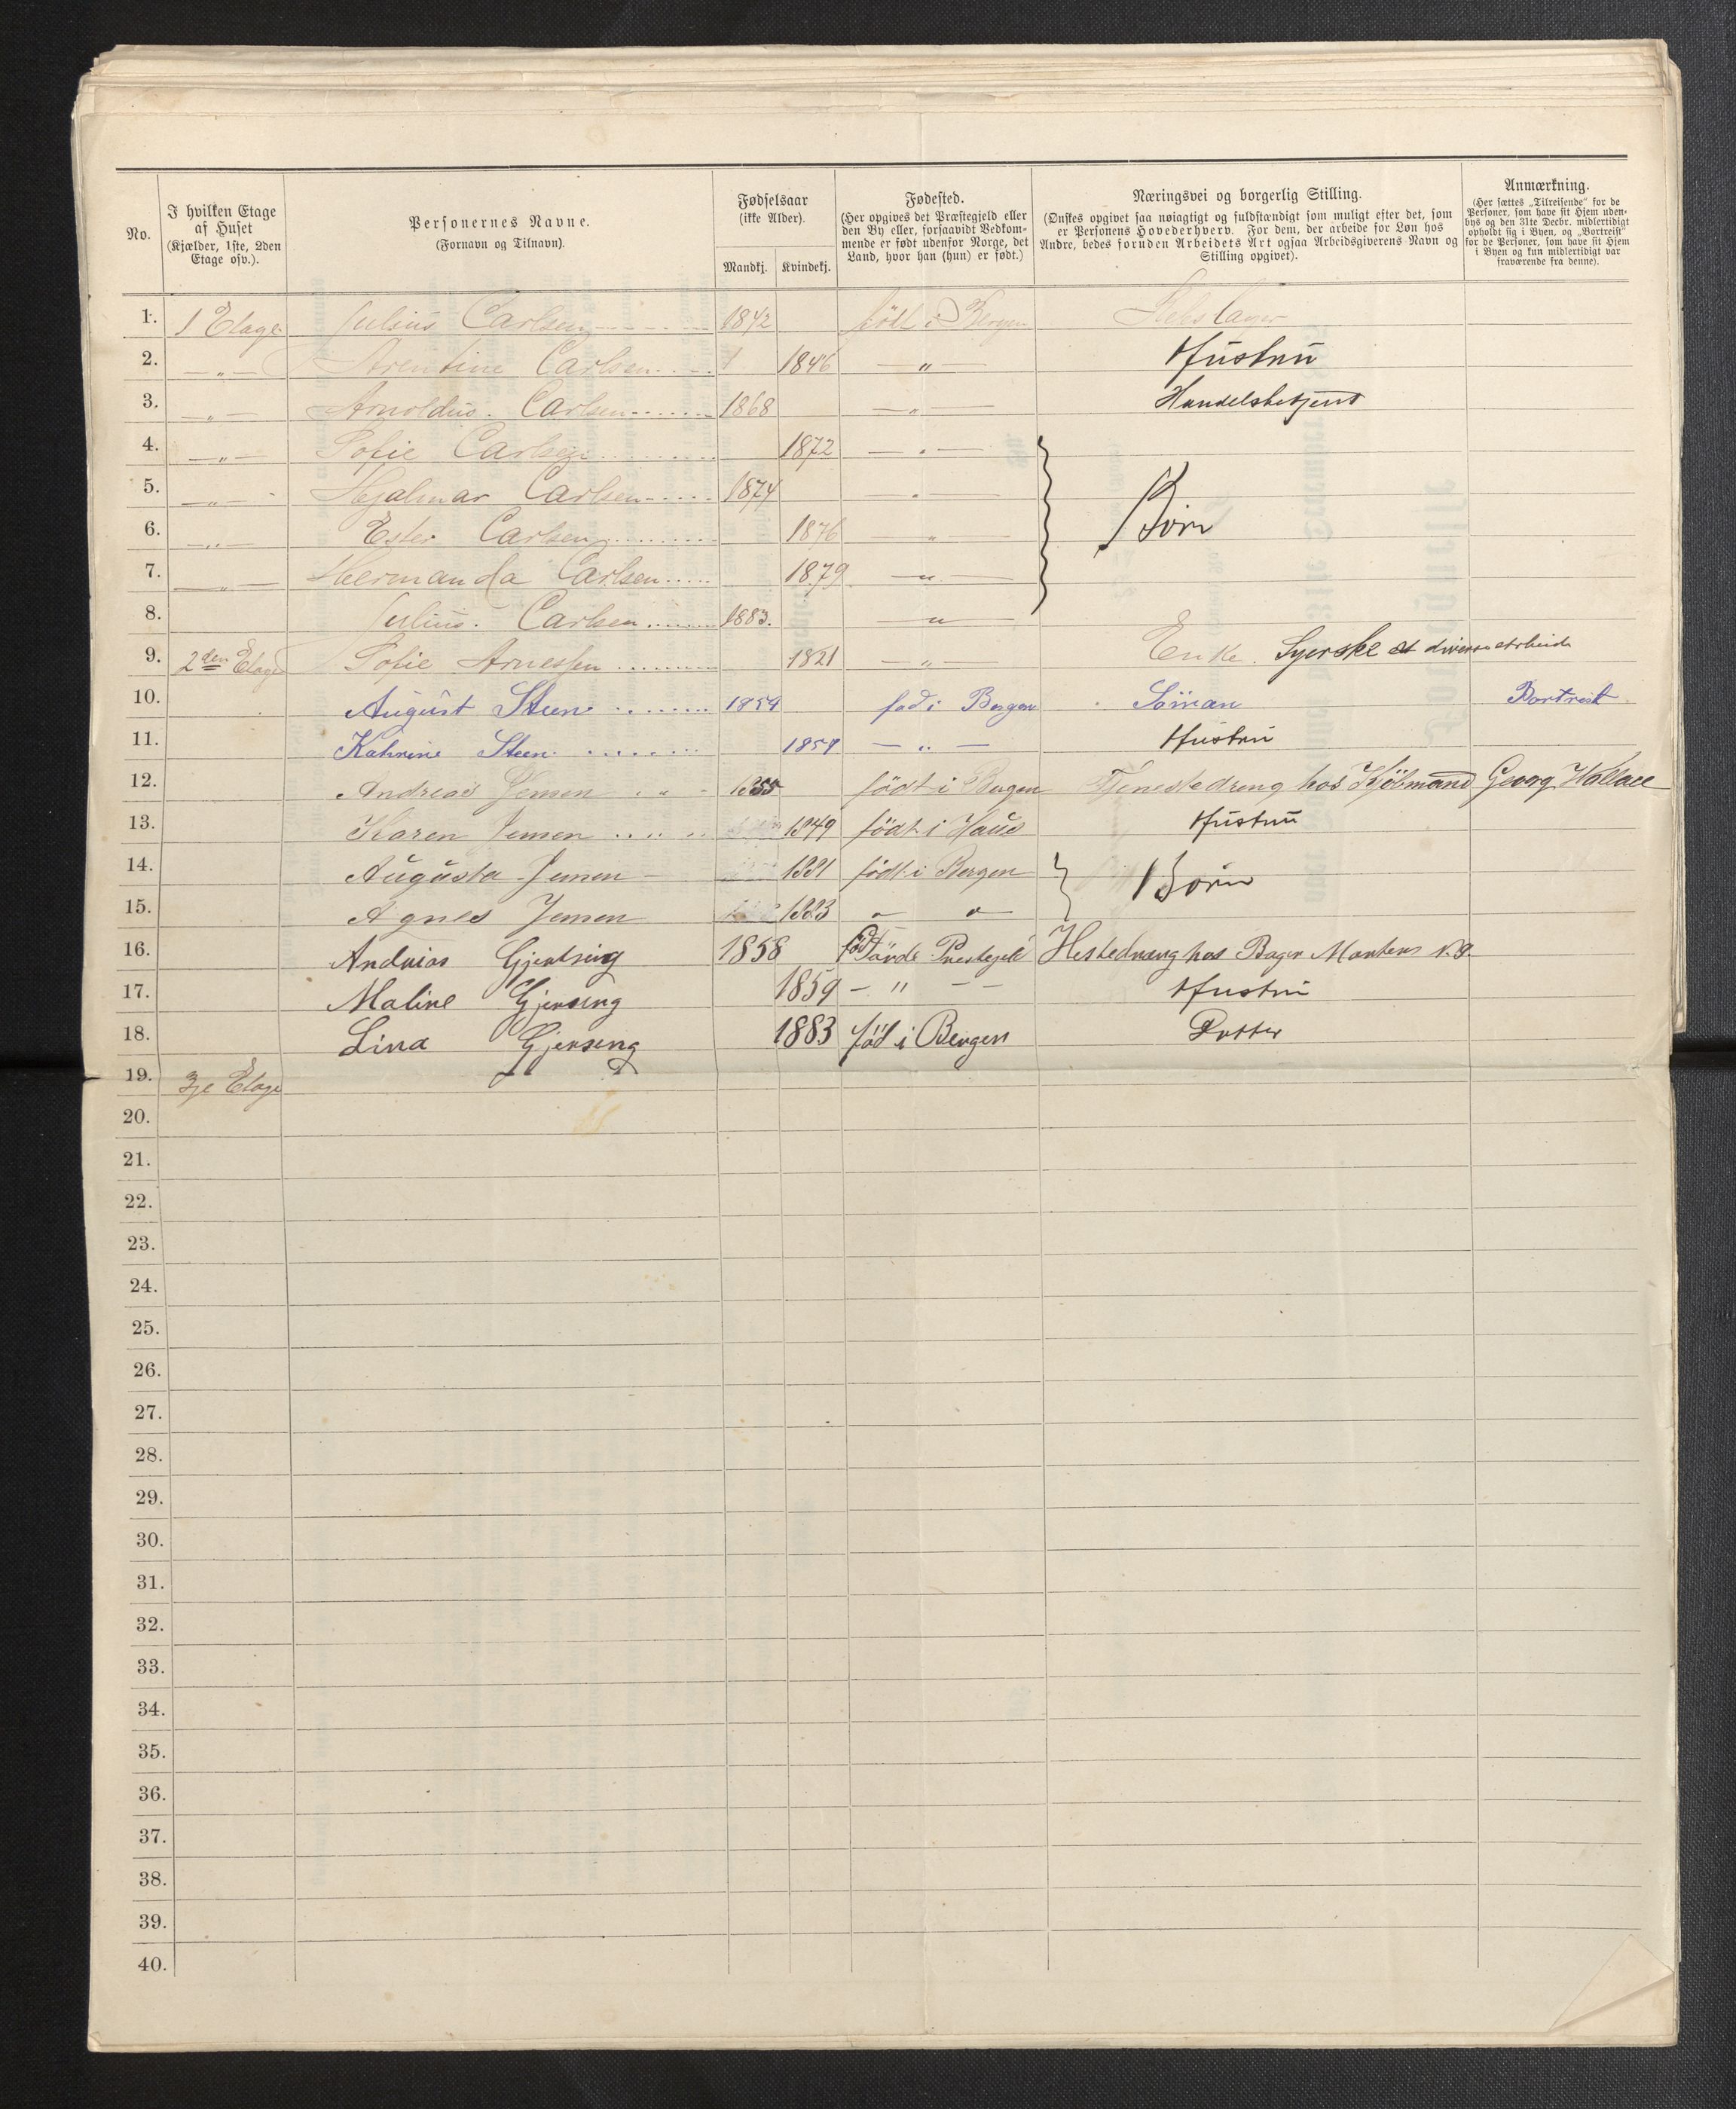 No.
I hvilken Etage af Huset (Kjælder, 1ste, 2den Etage osv.).
Personernes Navne. (Fornavn og Tilnavn).
Fødselsaar (ikke Alder). Mandkj. Kvindekj.
Fødested. (Her opgives det Præstegjeld eller den By eller, forsaavidt Vedkommende er født udenfor Norge, det Land, hvor han (hun) er født.)
Næringsvei og borgerlig Stilling. (Ønskes opgivet saa nøiagtigt og fuldstændigt som muligt efter det, som er Personens Hovederhverv. For dem, der arbeide for Løn hos Andre, bedes foruden Arbeidets Art ogsaa Arbeidsgiverens Navn og Stilling opgivet).
Anmærkning. (Her sættes „Tilreisende" for de Personer, som have sit Hjem udenbys og den 31te Decbr. midlertidigt opholdt sig i Byen, og „Bortreist" for de Personer, som have sit Hjem i Byen og kun midlertidigt var fraværende fra denne).
1. 1 Etage Julius Carlsen 1842 født i Bergen
2. — „ — Arentine Carlsen 1846 — „ — Hustru
3. — „ — Arnoldus. Carlsen 1868 — „ — Handelsbetjent
4. — „ — Sofie Carlsen 1872 — „ —
5. — „ — Hjalmar Carlsen 1874 — „ —
6. — „ — Ester Carlsen 1876 — „ — Börn
7. — „ — Hermanda Carlsen 1879 — „ —
8. Julius. Carlsen 1883. — „ —
9. 2den Etage Sofie Arnessen 1821 — „ — Enke. Syerske et diverse arbeide
10. August Steen 1859 fød i Bergen Söman Bortreist
11. Kahrine Steen 1859 — „ — Hustru
12. Andreas Jensen 1855 födt i Bergen Tjenestedreng hos Kjöbmand Georg Wallace
13. Karen Jensen 1849 födt i Haus Hustru
14. Augusta Jensen 1881 födt i Bergen Börn
15. Agnes Jensen 1883 „ „
16. Andreas Gjertsing 1858 född Förde Prestegjel Hestedreng hos Bager Martens N.g.
17. Maline Gjersing 1859 — „ — — Hustru
18. Lina Gjerseng 1883 föd i Bergen Dotter
19. 3je Etage
20.
21.
22.
23.
24.
25.
26.
27.
28.
29.
30.
31.
32.
33.
34.
35.
36.
37.
38.
39.
40.